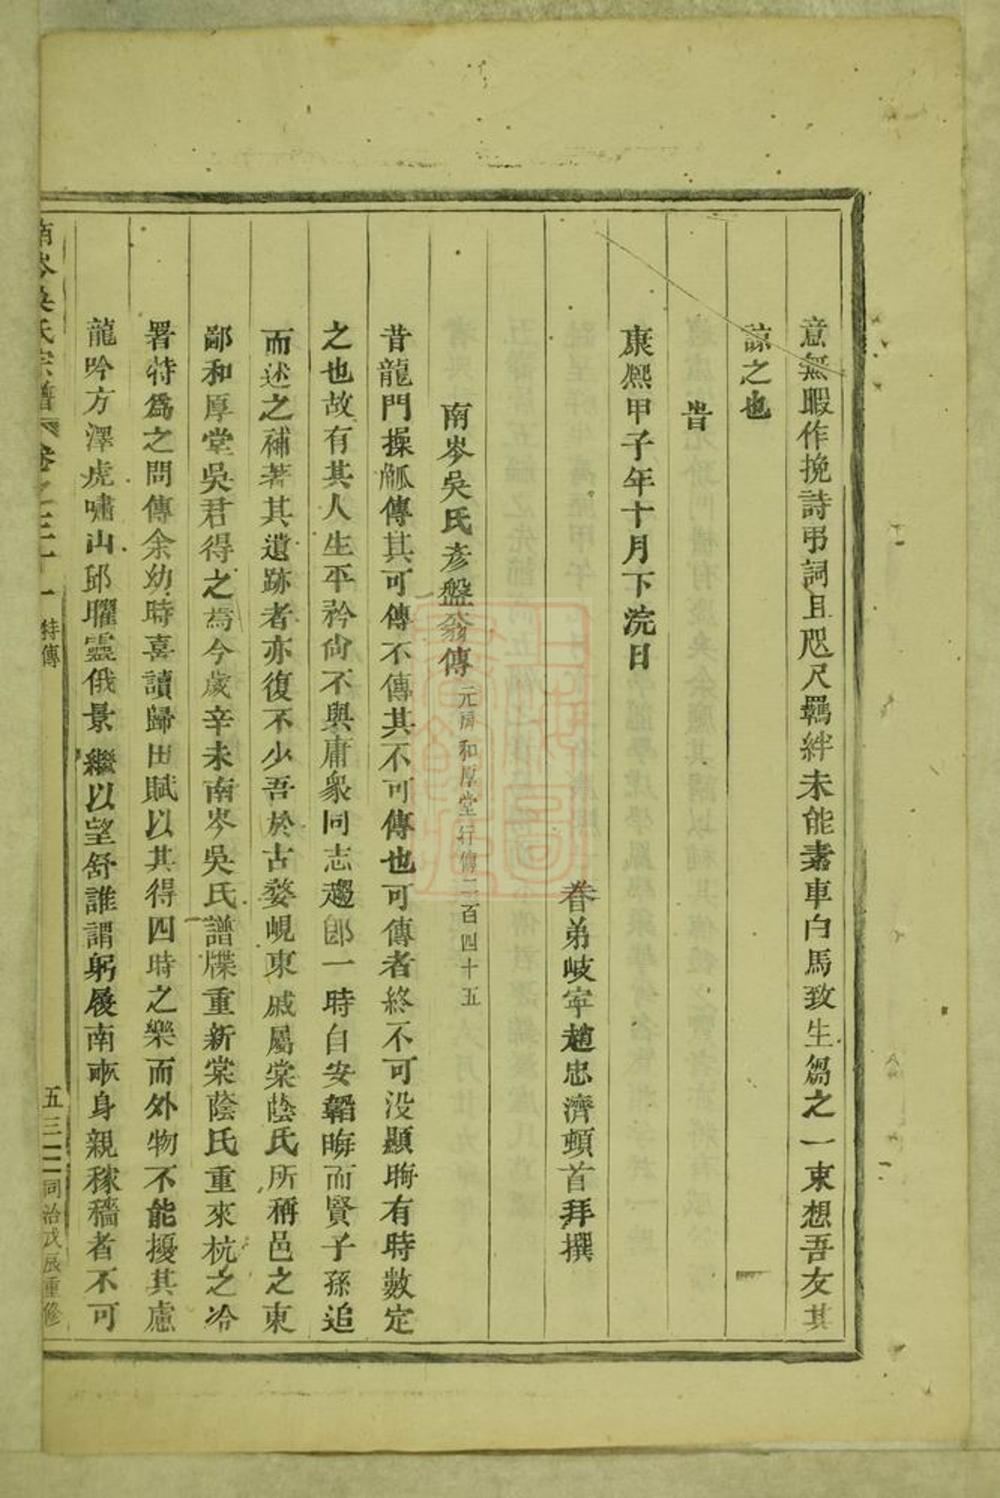 意無暇作挽詩弔詞且咫尺羈絆未能素車白馬致生芻之一束想吾友其
諒之也
旹
康熈甲子年十月下浣日
眷弟岐寜趙忠濟頓首拜撰
南岑吳氏彥盤翁傳 元房和厚堂行傳二百四十五
昔龍門操觚傳其可傳不傳其不可傳也可傳者終不可没顯晦有時數定
之也故有其人生平矜尙不與庸衆同志趨卽一時自安韜晦而賢子孫追
而述之補著其遺跡者亦復不少吾於古婺峴東戚屬棠蔭氏所稱邑之東
鄙和厚堂吳君得之焉今歲辛未南岑吳氏譜牒重新棠蔭氏重來杭之冷
署特爲之問傳余幼時喜讀歸田賦以其得四時之樂而外物不能擾其慮
龍吟方澤虎嘯山邱曜靈俄景繼以望舒誰謂躬履南畝身親稼穡者不可
南岑吳氏宗譜 卷之三十一 特傳 五三二 同治戊辰重修